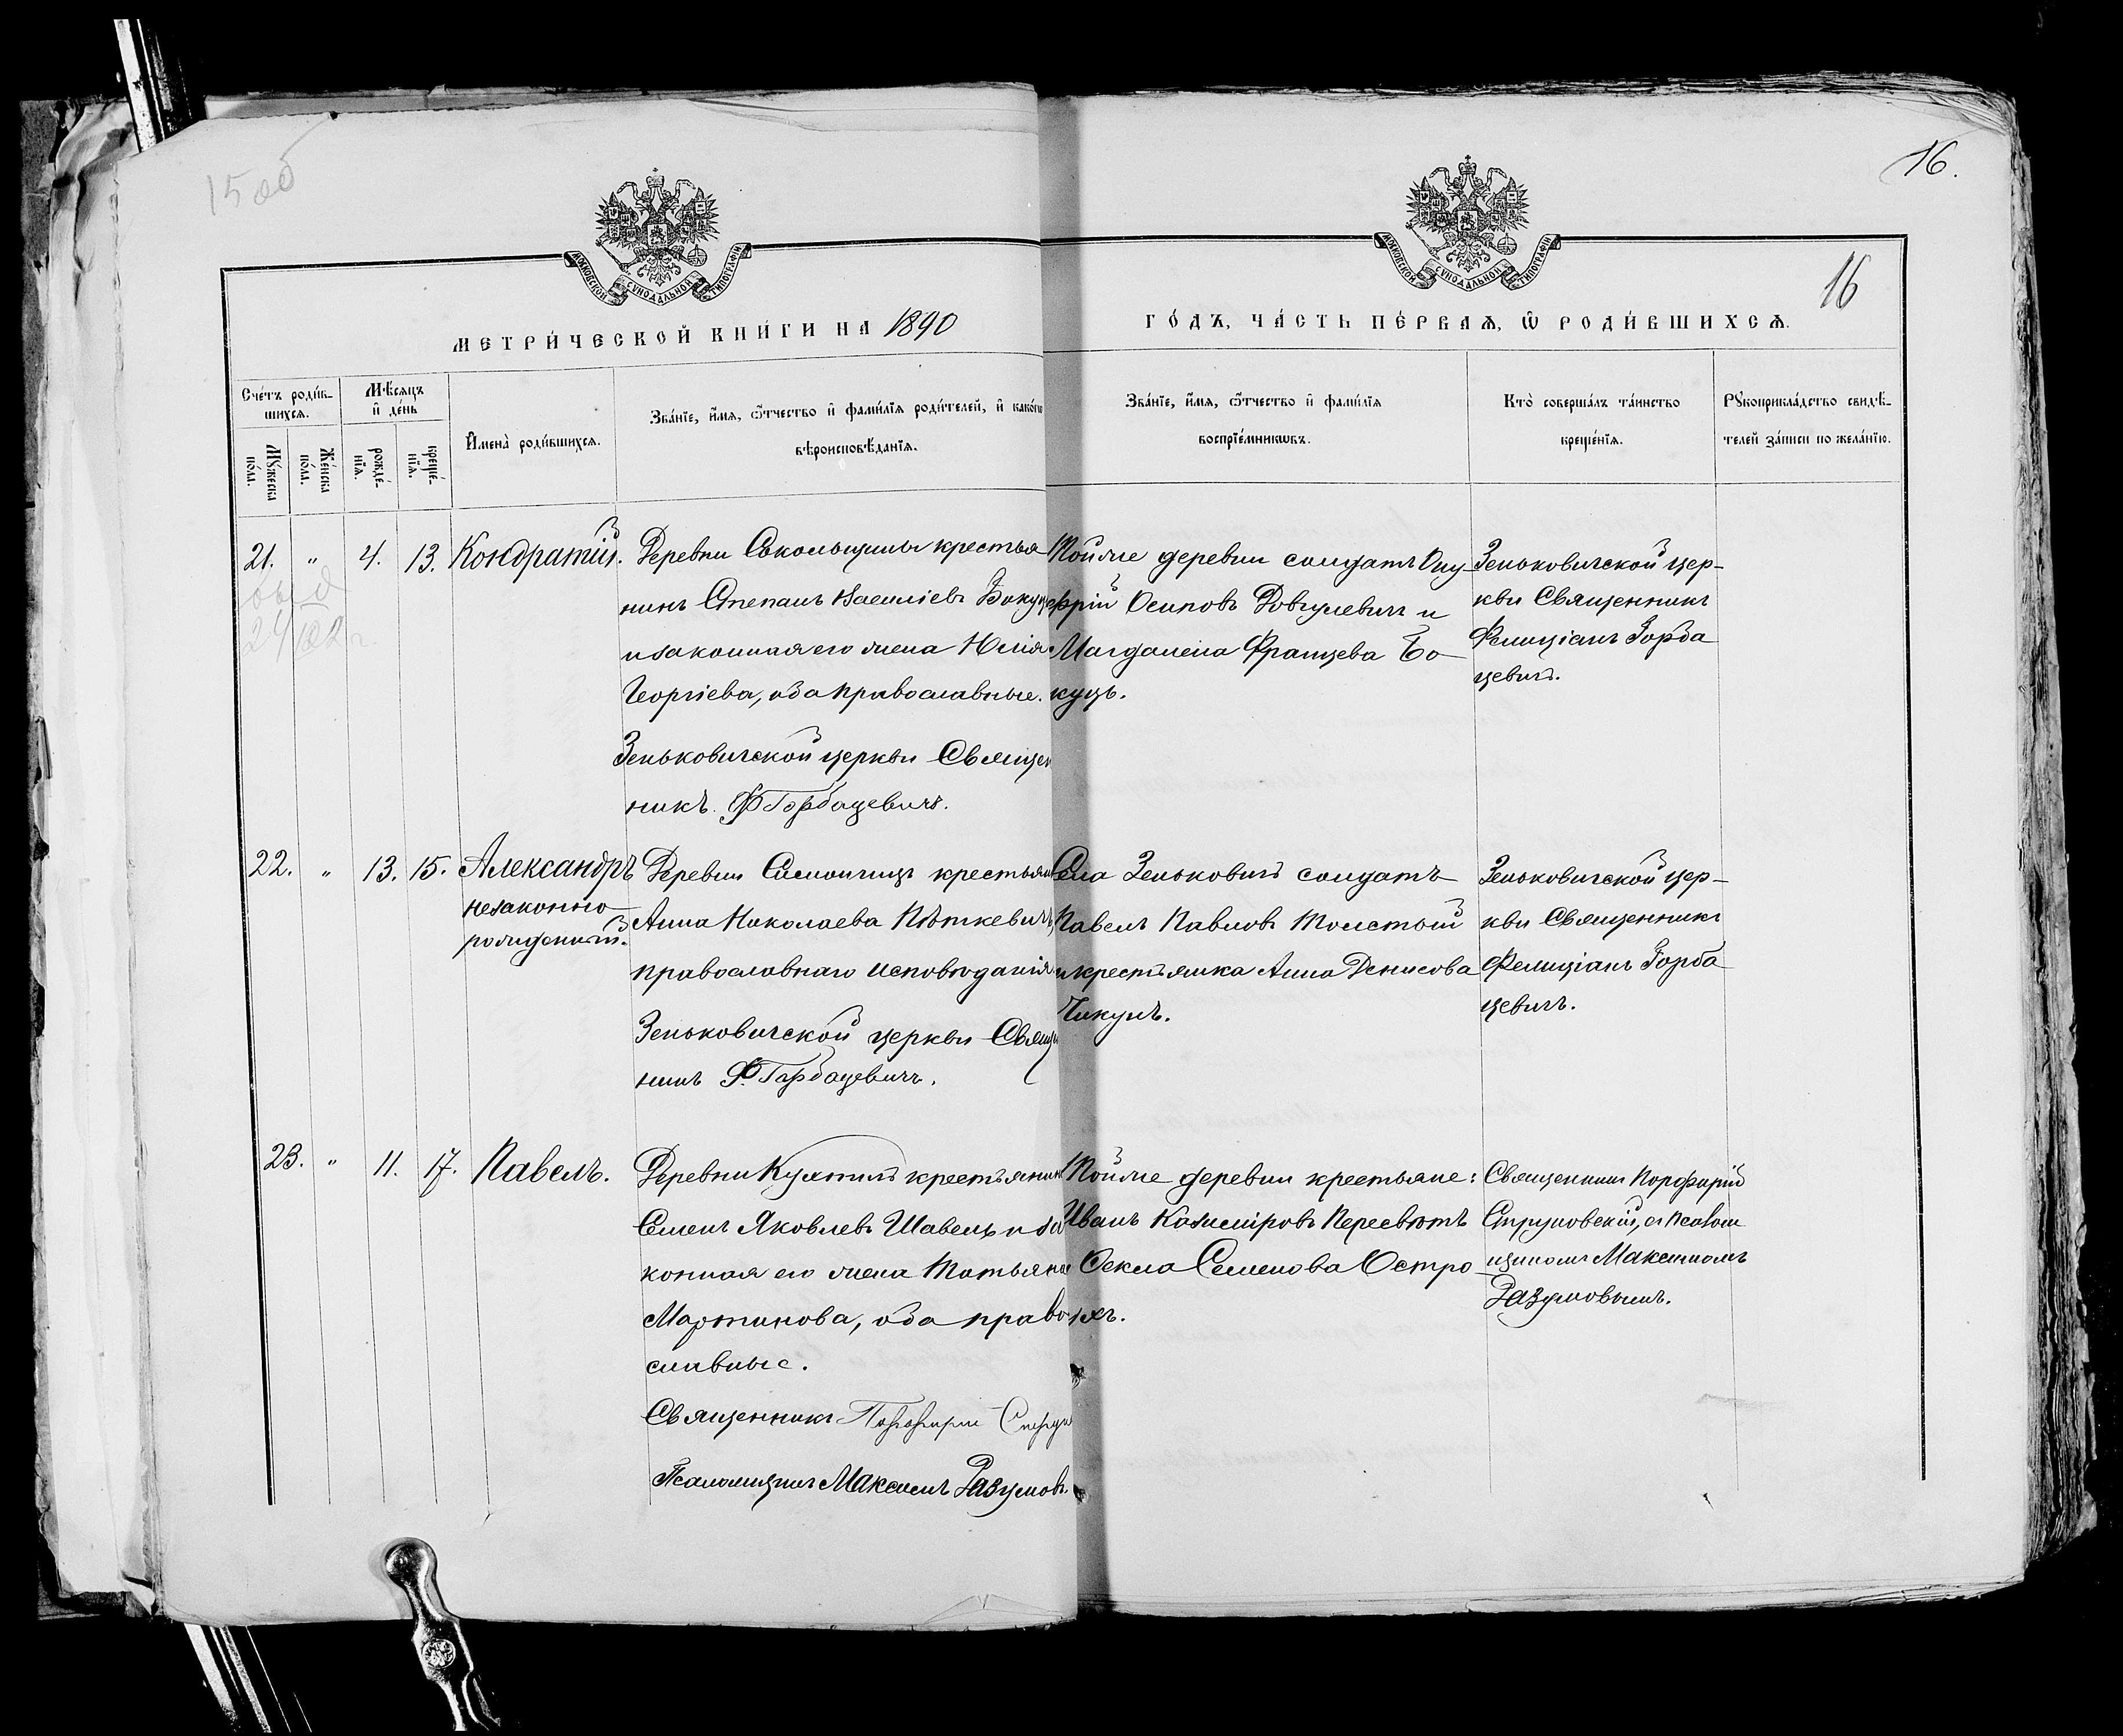 15 об
16.
16
МОСКОВСКОЙ СѴНОДАЛЬНОЙ ТИПОГРАФІИ
МОСКОВСКОЙ СѴНОДАЛЬНОЙ ТИПОГРАФІИ
МЕТРИ́ЧЕСКОЙ КНИ́ГИ НА 1890
ГО́ДЪ, ЧА́СТЬ ПЕ́РВАѦ, Ѡ҆ РОДИ́ВШИХСѦ.
Сче́тъ роди́в-
шихсѧ.
Мꙋ́жеска
по́ла.
Же́нска
по́ла.
Мѣ́сѧцъ
и҆ де́нь
рожде́-
нїѧ.
креще́-
нїѧ.
И҆мена̀ роди́вшихсѧ.
Зва́нїе, и҆́мѧ, ѻ҆́тчество и҆ фами́лїѧ роди́телей, и҆ како́гѡ
вѣроисповѣ́данїѧ.
Зва́нїе, и҆́мѧ, ѻ҆́тчество и҆ фами́лїѧ
воспрїе́мникѡвъ.
Кто̀ соверша́лъ та́инство
креще́нїѧ.
Рꙋкоприкла́дство свидѣ́-
телей за́писи по жела́нїю.
21. " 4. 13. Кондратій.
Деревни Сокольщины крестья
нинъ Степанъ Васильевъ Бокуць
и законная его жена Юлія
Георгіева, оба православные.
Зеньковичской церкви Священ
никъ Ф Горбацевичъ.
Тойже деревни солдатъ Ону-
фрій Осиповъ Довгулевичъ и
Магдалена Францева Бо-
куць.
Зеньковичской цер-
кви Священникъ
Фелиціанъ Горба
цевичъ.
22. " 13. 15. Александръ
незаконно-
рожденный.
Деревни Симоничъ крестьян
Анна Николаева Пѣткевичъ,
православнаго исповѣданія
Зеньковичской церкви Свящ
никъ Ф. Горбацевичъ.
Села Зеньковичъ солдатъ
Павелъ Павловъ Толстый
и крестьянка Анна Денисова
Чикунъ.
Зеньковичской цер-
кви Священникъ
Фелиціанъ Горба
цевичъ.
23. " 11. 17. Павелъ.
Деревни крестьянинъ
Семенъ Яковлевъ Шавель и за
конная его жена Татьяна
Мартинова, оба право
славные.
Священникъ Порфирій
Псаломщикъ Максимъ Разумовъ
Тойже деревни крестьяне:
Иванъ Казиміровъ Пересвѣтъ
Ѳекла Семенова Остро
ухъ.
Священникъ Порфирій
Струковскій, съ псалом
щикомъ Максимомъ
Разумовымъ.